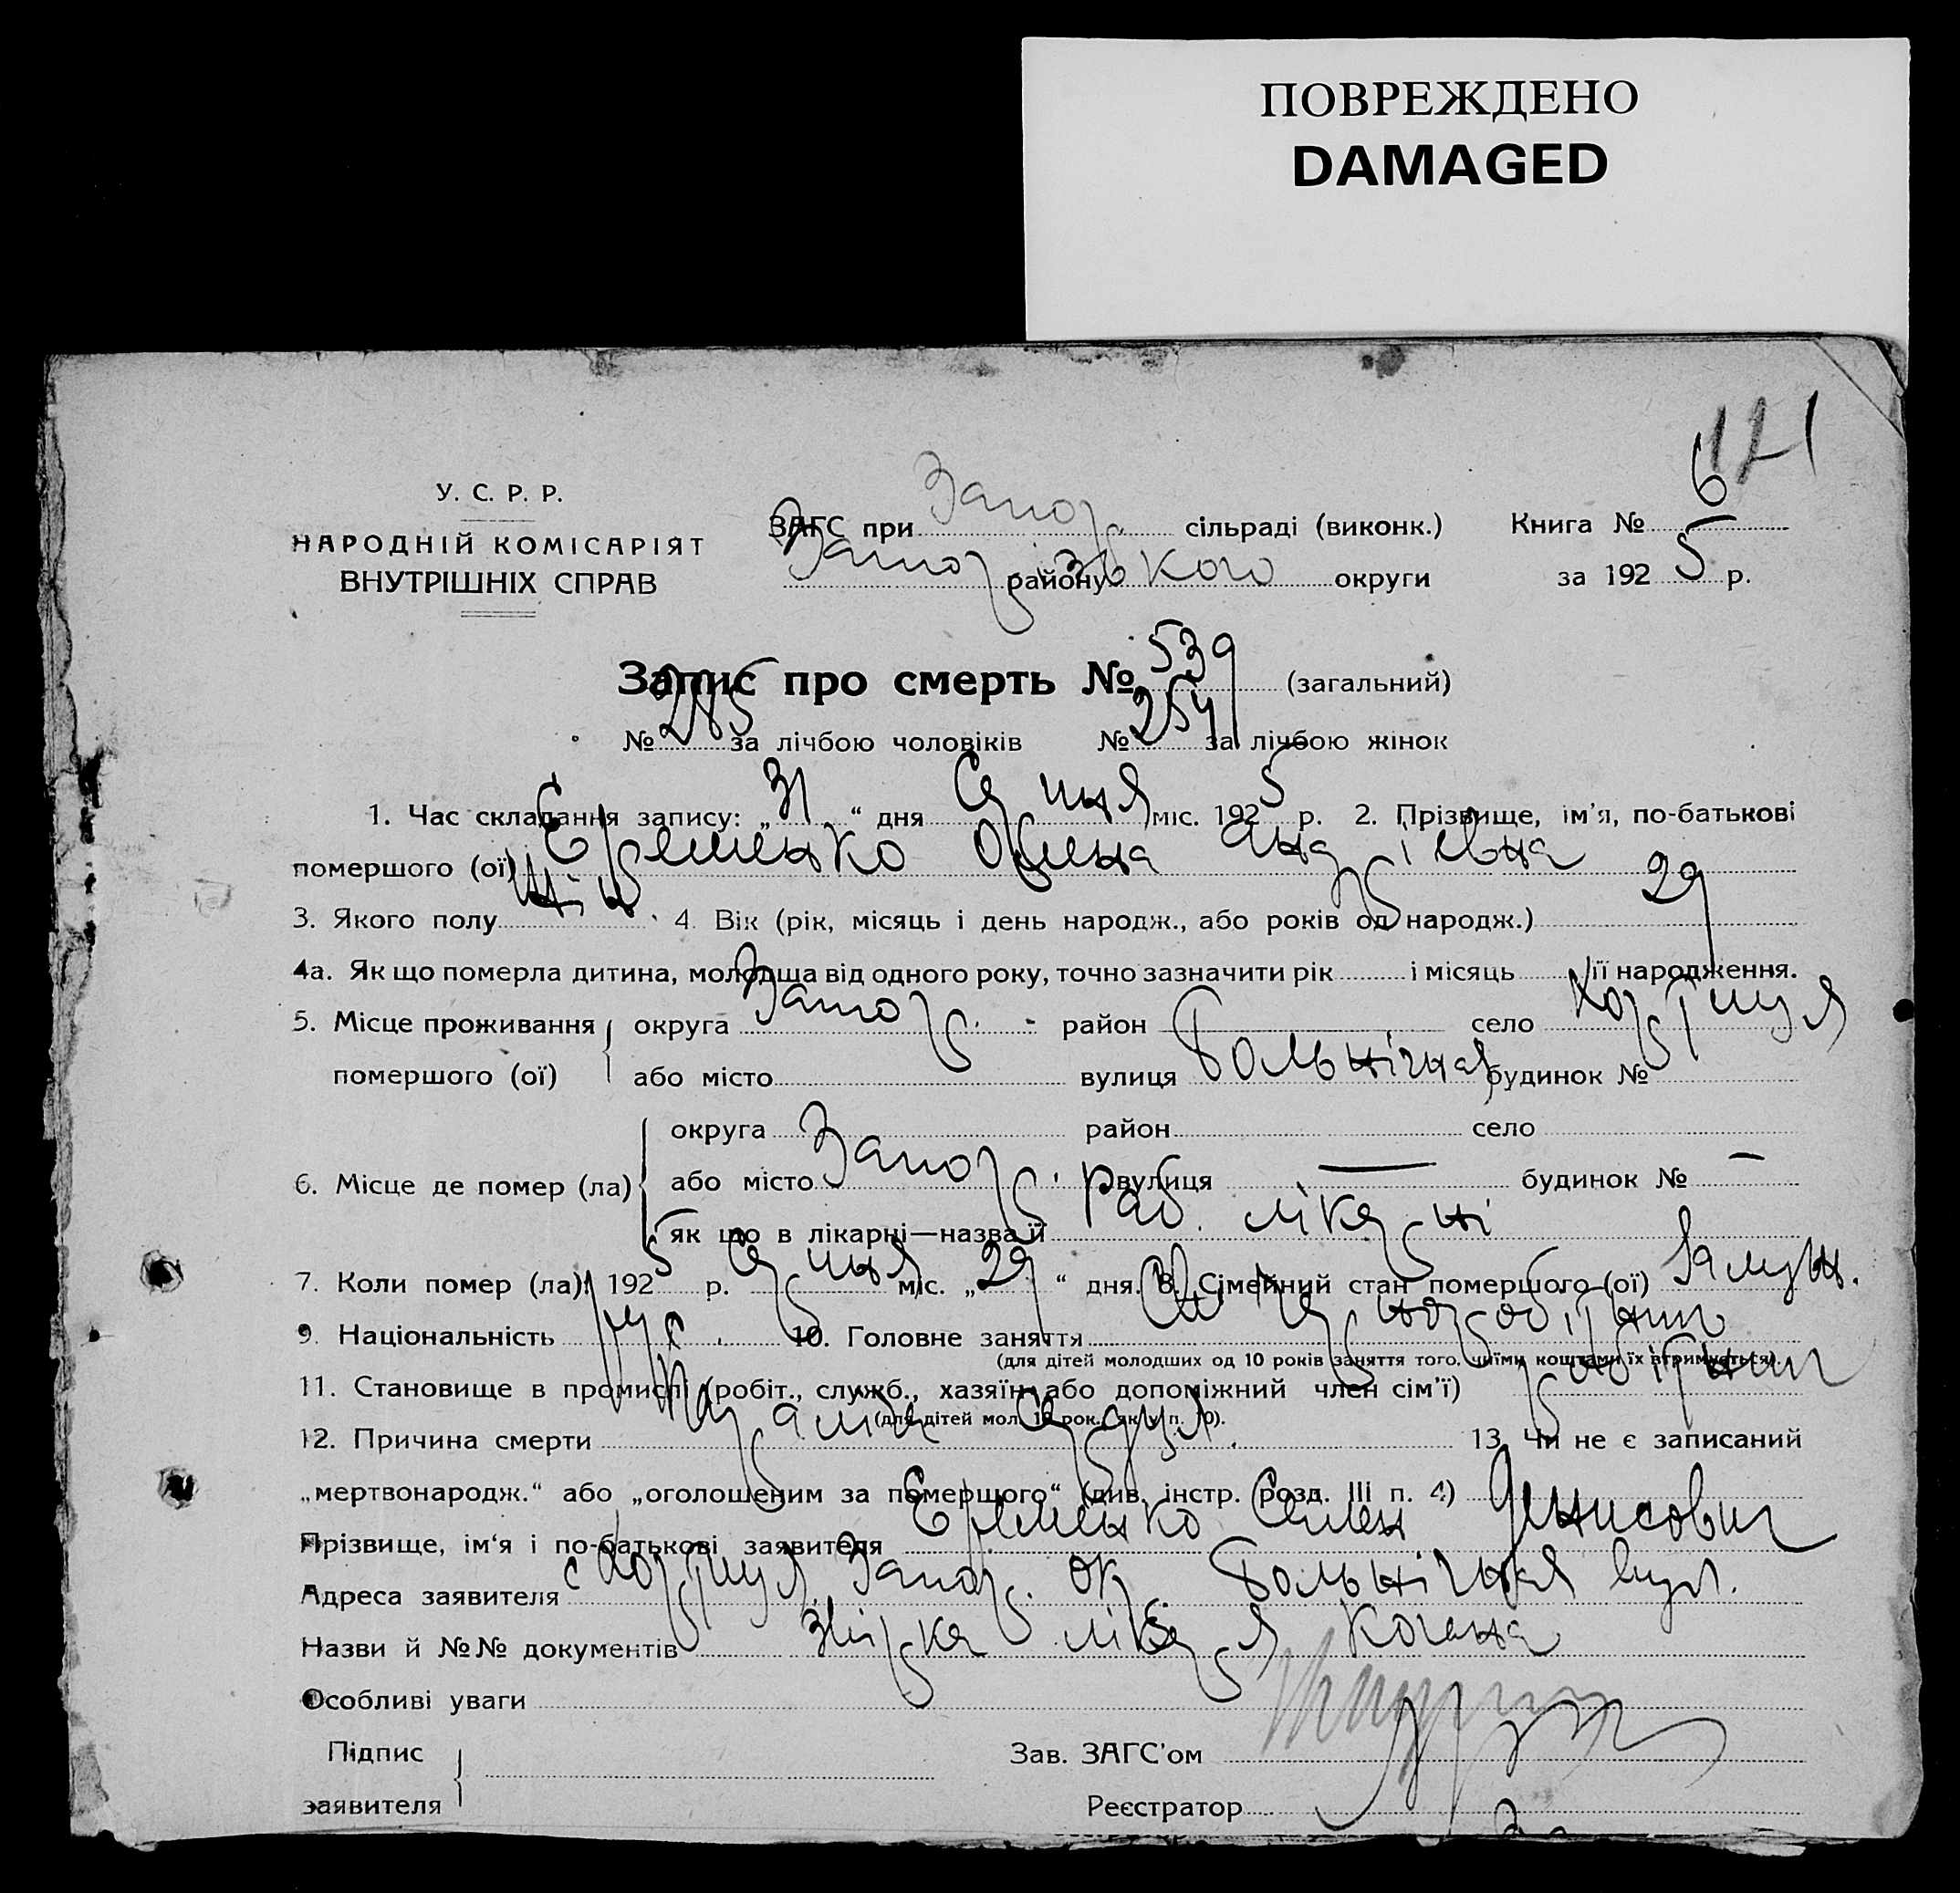 ПОВРЕЖДЕНО
DAMAGED
6 171
У. С. Р. Р.
НАРОДНІЙ КОМІСАРІЯТ
ВНУТРІШНІХ СПРАВ
ЗАГС при Запор. сільраді (виконк.) Книга №
Запорізького району округи за 1925 р.
Запис про смерть № 539 (загальний)
№ 285 за лічбою чоловіків № 254 за лічбою жінок
1. Час складання запису: „31“ дня Серпня міс. 1925 р. 2. Прізвище, ім'я, по-батькові
помершого (ої) Єременко Орина Андріївна
3. Якого полу жін. 4. Вік (рік, місяць і день народж., або років од народж.) 29
4а. Як що померла дитина, молодша від одного року, точно зазначити рік і місяць її народження.
5. Місце проживання округа Запор. район село Хортиця
помершого (ої) або місто вулиця Больнічная будинок №
округа район село
6. Місце де помер (ла) або місто Запор. вулиця — будинок № —
як що в лікарні—назва її Рад. лікарні
7. Коли помер (ла): 1925 р. Серпня міс. „29“ дня. 8. Сімейний стан помершого (ої) Замуж.
9. Національність рус. 10. Головне заняття чорноробітниц
(для дітей молодших од 10 років заняття того, чиїми коштами їх втримується).
11. Становище в промислі (робіт., служб., хазяїн або допоміжний член сім'ї) робітниц
(для дітей мол. 10 рок., як у п. 10).
12. Причина смерти Параліч серця. 13. Чи не є записаний
„мертвонародж.“ або „оголошеним за померщого“ (див. інстр. розд. III п. 4)
Прізвище, ім'я і по-батькові заявителя Єременко Семен Денисович
Адреса заявителя с Хортиця Запор. ок. Больнічная вул.
Назви й №№ документів звірка лікаря Когана
Особливі уваги
Підпис
заявителя
Зав. ЗАГС'ом
Реєстратор